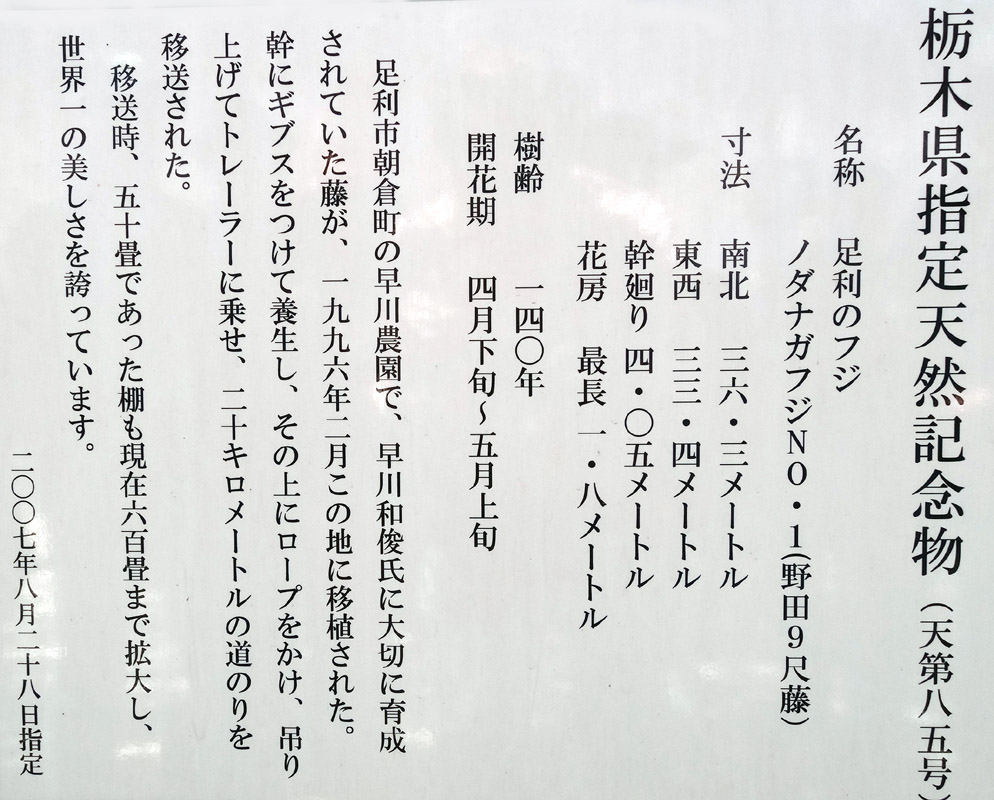 栃木県指定天然記念物（天第八五号）
名称　足利のフジ
ノダナガフジNO・1（野田9尺藤）
寸法　南北　三六・三メートル
東西　三三・四メートル
幹廻り　四・〇五メートル
花房　最長　一・八メートル
樹齢　一四〇年
開花期　四月下旬～五月上旬
足利市朝倉町の早川農園で、早川和俊氏に大切に育成
されていた藤が、一九九六年二月この地に移植された。
幹にギブスをつけて養生し、その上にロープをかけ、吊り
上げてトレーラーに乗せ、二十キロメートルの道のりを
移送された。
移送時、五十畳であった棚も現在六百畳まで拡大し、
世界一の美しさを誇っています。
二〇〇七年八月二十八日指定